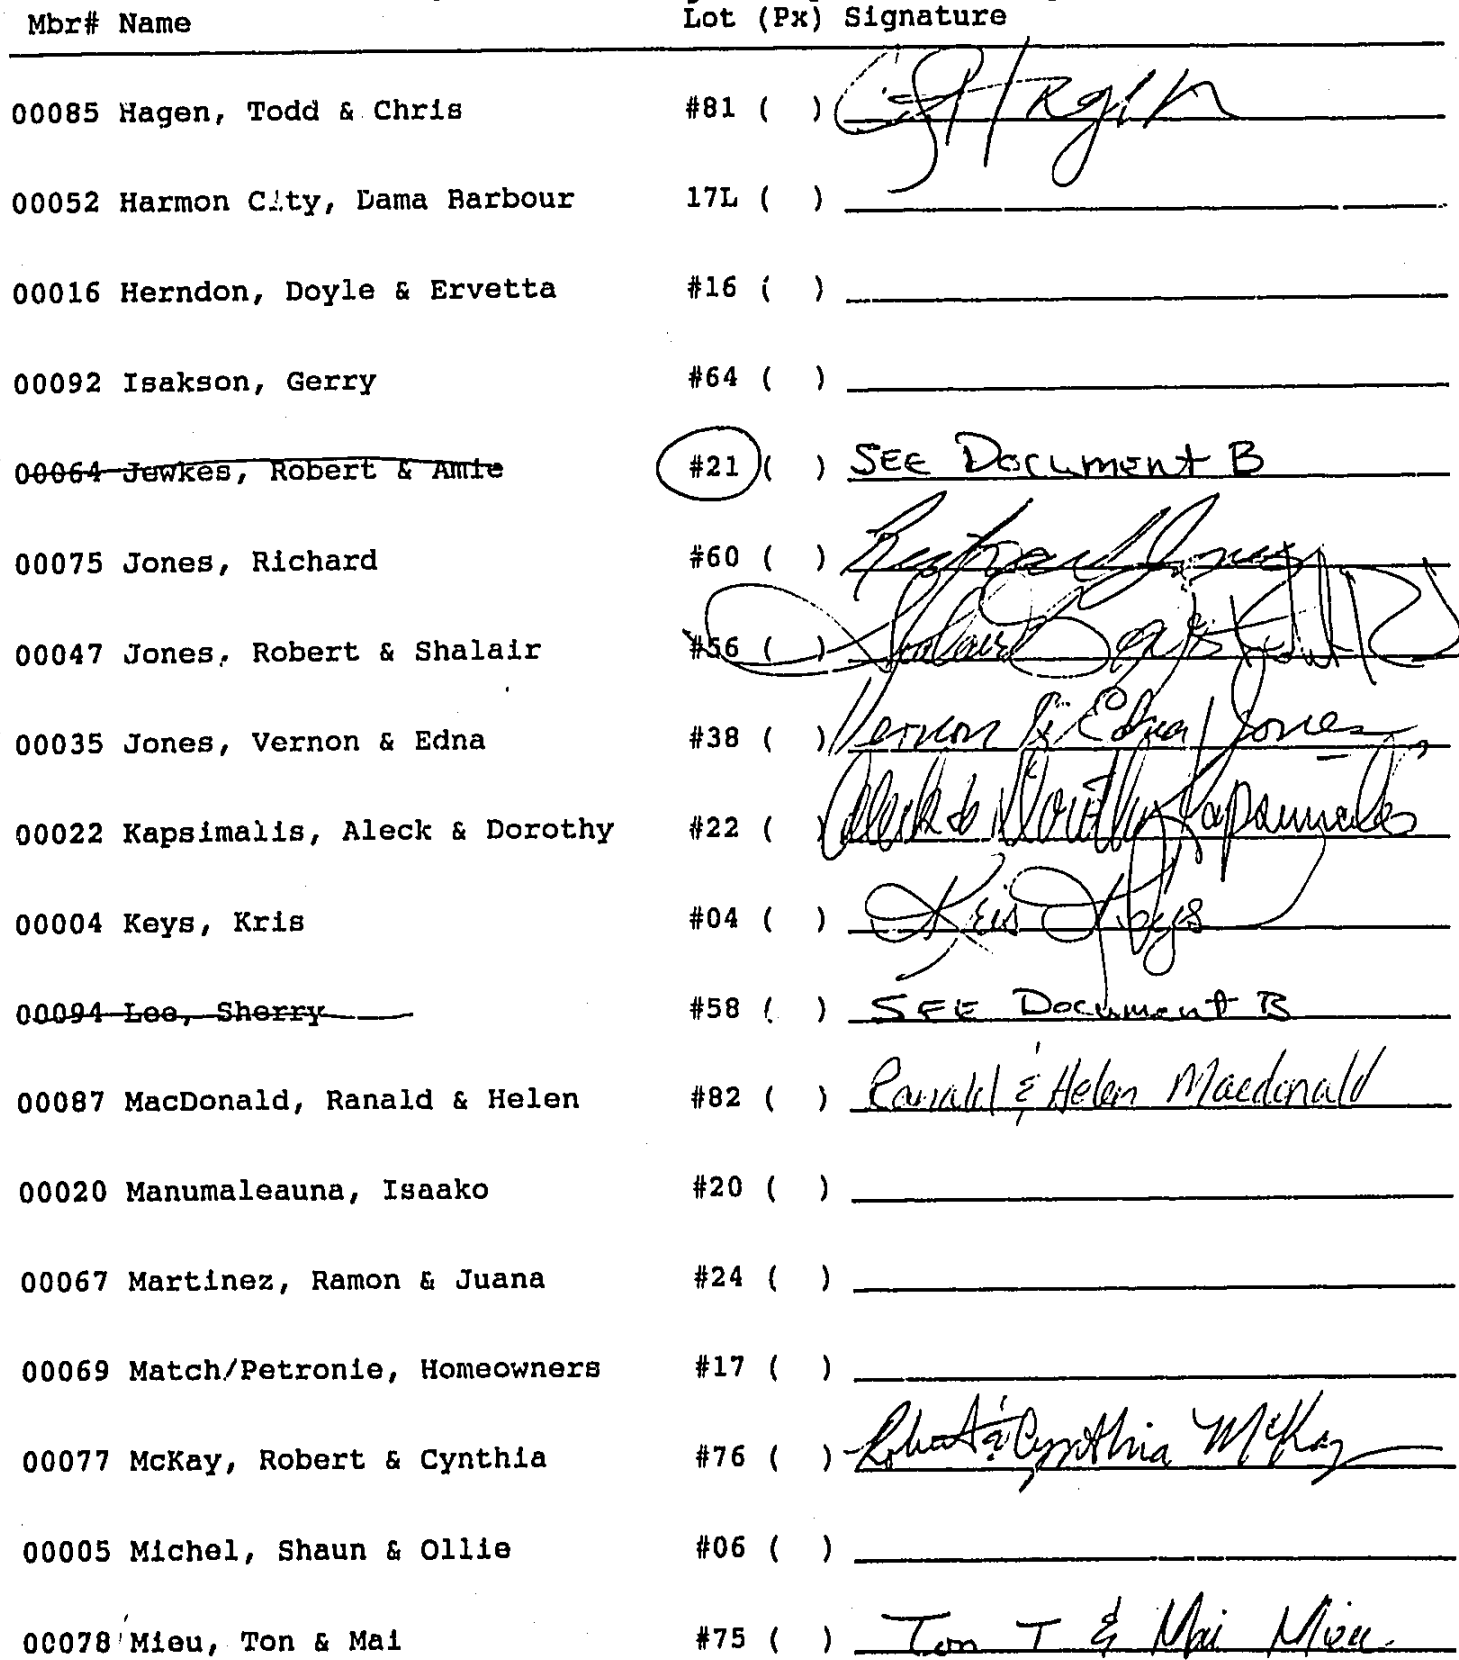 Mbr# Name Lot (Px) Signature
00085 Hagen, Todd & Chris #81 ( ) Hagen
00052 Harmon City, Dama Barbour 17L ( )
00016 Herndon, Doyle & Ervetta #16 ( )
00092 Isakson, Gerry #64 ( )
00064 Jewkes, Robert & Amie #21 ( ) SEE Document B
00075 Jones, Richard #60 ( ) Richard Jones
00047 Jones, Robert & Shalair #56 ( ) Shalair
00035 Jones, Vernon & Edna #38 ( ) Vernon & Edna Jones
00022 Kapsimalis, Aleck & Dorothy #22 ( ) Aleck & Dorothy Kapsimalis
00004 Keys, Kris #04 ( ) Kris Keys
00094 Lee, Sherry #58 ( ) SEE Document B
00087 MacDonald, Ranald & Helen #82 ( ) Ranald & Helen Macdonald
00020 Manumaleauna, Isaako #20 ( )
00067 Martinez, Ramon & Juana #24 ( )
00069 Match/Petronie, Homeowners #17 ( )
00077 McKay, Robert & Cynthia #76 ( ) Robert & Cynthia McKay
00005 Michel, Shaun & Ollie #06 ( )
00078 Mieu, Ton & Mai #75 ( ) Ton T & Mai Mieu